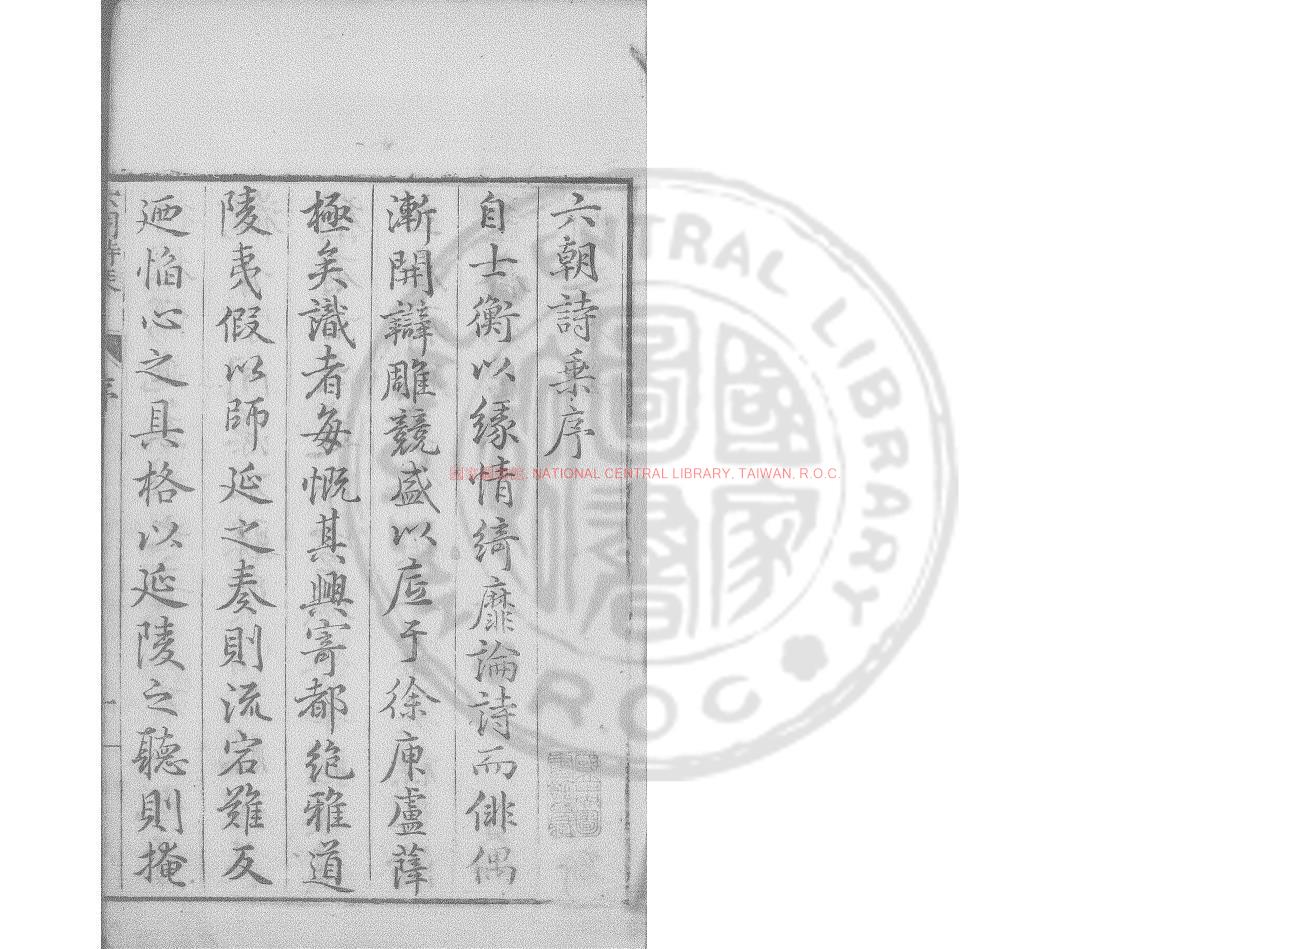 六朝詩乗序
自士衡以緣情綺靡論詩而俳偶
漸開辭雕競盛以底于徐庾盧薛
極矣識者每慨其興寄都絶雅道
陵夷假以師延之奏則流宕難反
廼惂心之具格以延陵之聽則掩
NATIONAL CENTRAL LIBRARY, TAIWAN, R.O.C.
CENTRAL LIBRARY
ROC